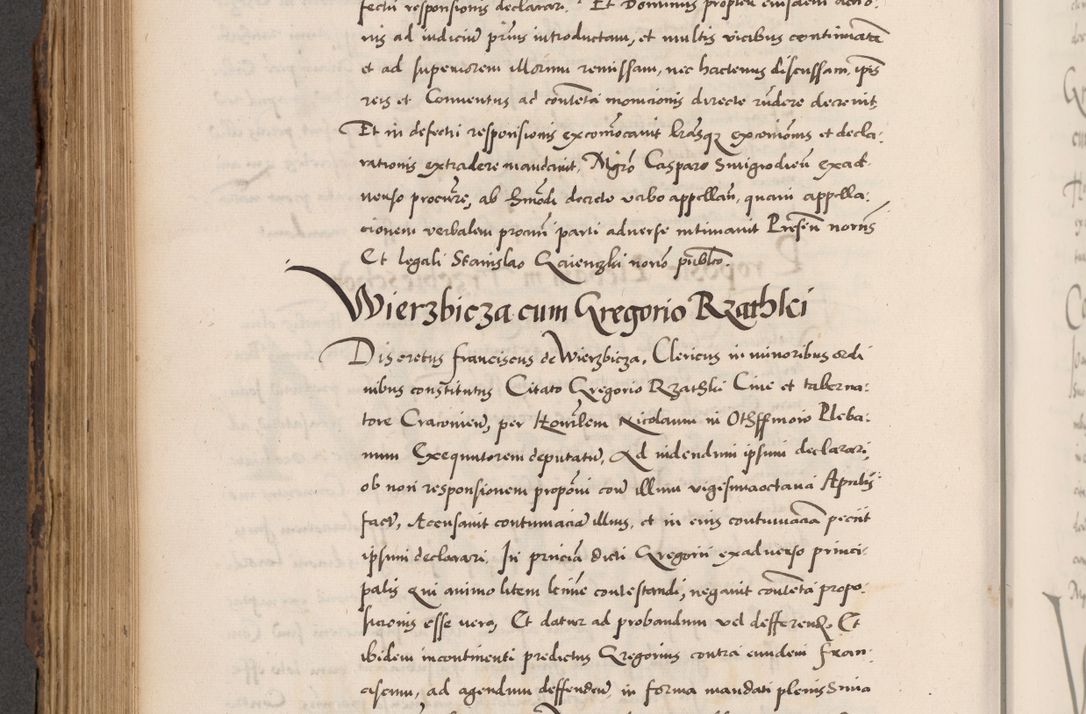 fectu responsionis declarari. Et Dominus propter eiusdem
nis ad iudiciu prius introductam, et multis vicibus continuata
et ad superiorem illorum remissam, nec hactenus discussam, ip̃s
reis et Conventus ad contẽta monicionis directe rũdere decrevit,
Et in defectu responsionis excom̃ocavit l̃rasq3 excom̃onis et decla:
rationis extradere mandavit, Mgrõ Casparo Smigrodien̄ exad:
verso procur̃e, ab h̃mõdi decreto verbo appellan̄, quam appella:
cionem verbalem procur̃i parti adverse intimavit P̃resen̄ noriis
Et legali Stanislao Gaienczki norio publ̃co.
Wierzbicza cum Gregorio Rzathski
Discretus franciscus de Wierzbicza, Clericus in minoribus ordi
nibus constitutus Citato Gregorio Rzathski Cive et taberna:
tore Cracovien̄, per Hon̄ilem Nicolaum in Othffinow Pleba:
num Exequutorem deputatu, Ad videndum ipsum declarari,
ob non responsionem propõni con̄ illum vigesimaoctava Aprilis
fact̃, Accusavit contumacia illius, et in eius contumaciã petiit
ipsum declarari. In p̃nciã dicti Gregorii exadverso princi:
palis Qui animo litem l̃ime contestandi, negavit contẽta propo:
sicionis esse vera, Et datur ad probandum vel defferend̃. Et
ibidem incontinenti predictus Gregorius contra eundem fran:
ciscum, ad agendum deffenden̄, in forma mandati plenissima